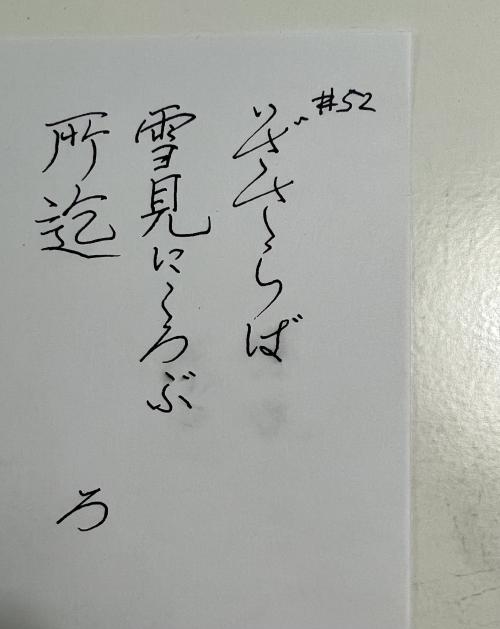 #52
いざさらば
雪見にころぶ
所迄
ろ